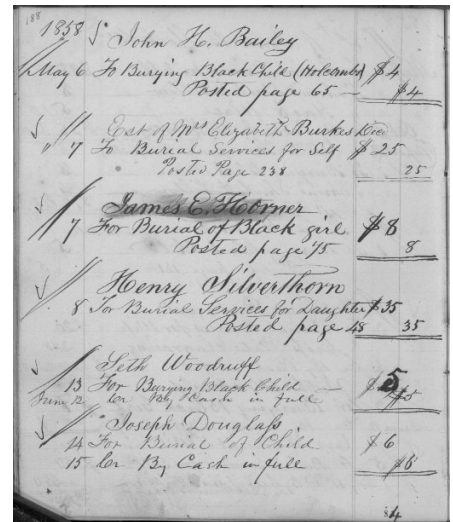 188
1858
John H. Bailey
May 6 To Burying Black Child (Holcombs) $4
Posted page 65 — $4
Est of Mrs Elizabeth Burkes Decd
" 7 To Burial Services for Self $25
Posted Page 238 25
James E. Hoorner
7 For Burial of Black girl $8
Posted page 75 8
Henry Silverthorn
8 For Burial Services for Daughter $35
Posted page 48 35
Seth Woodruff
13 For Burying Black Child — $5
June 12 Cr By Cash in full $5
Joseph Douglass
14 For Burial of Child $6
15 Cr By Cash in full $6